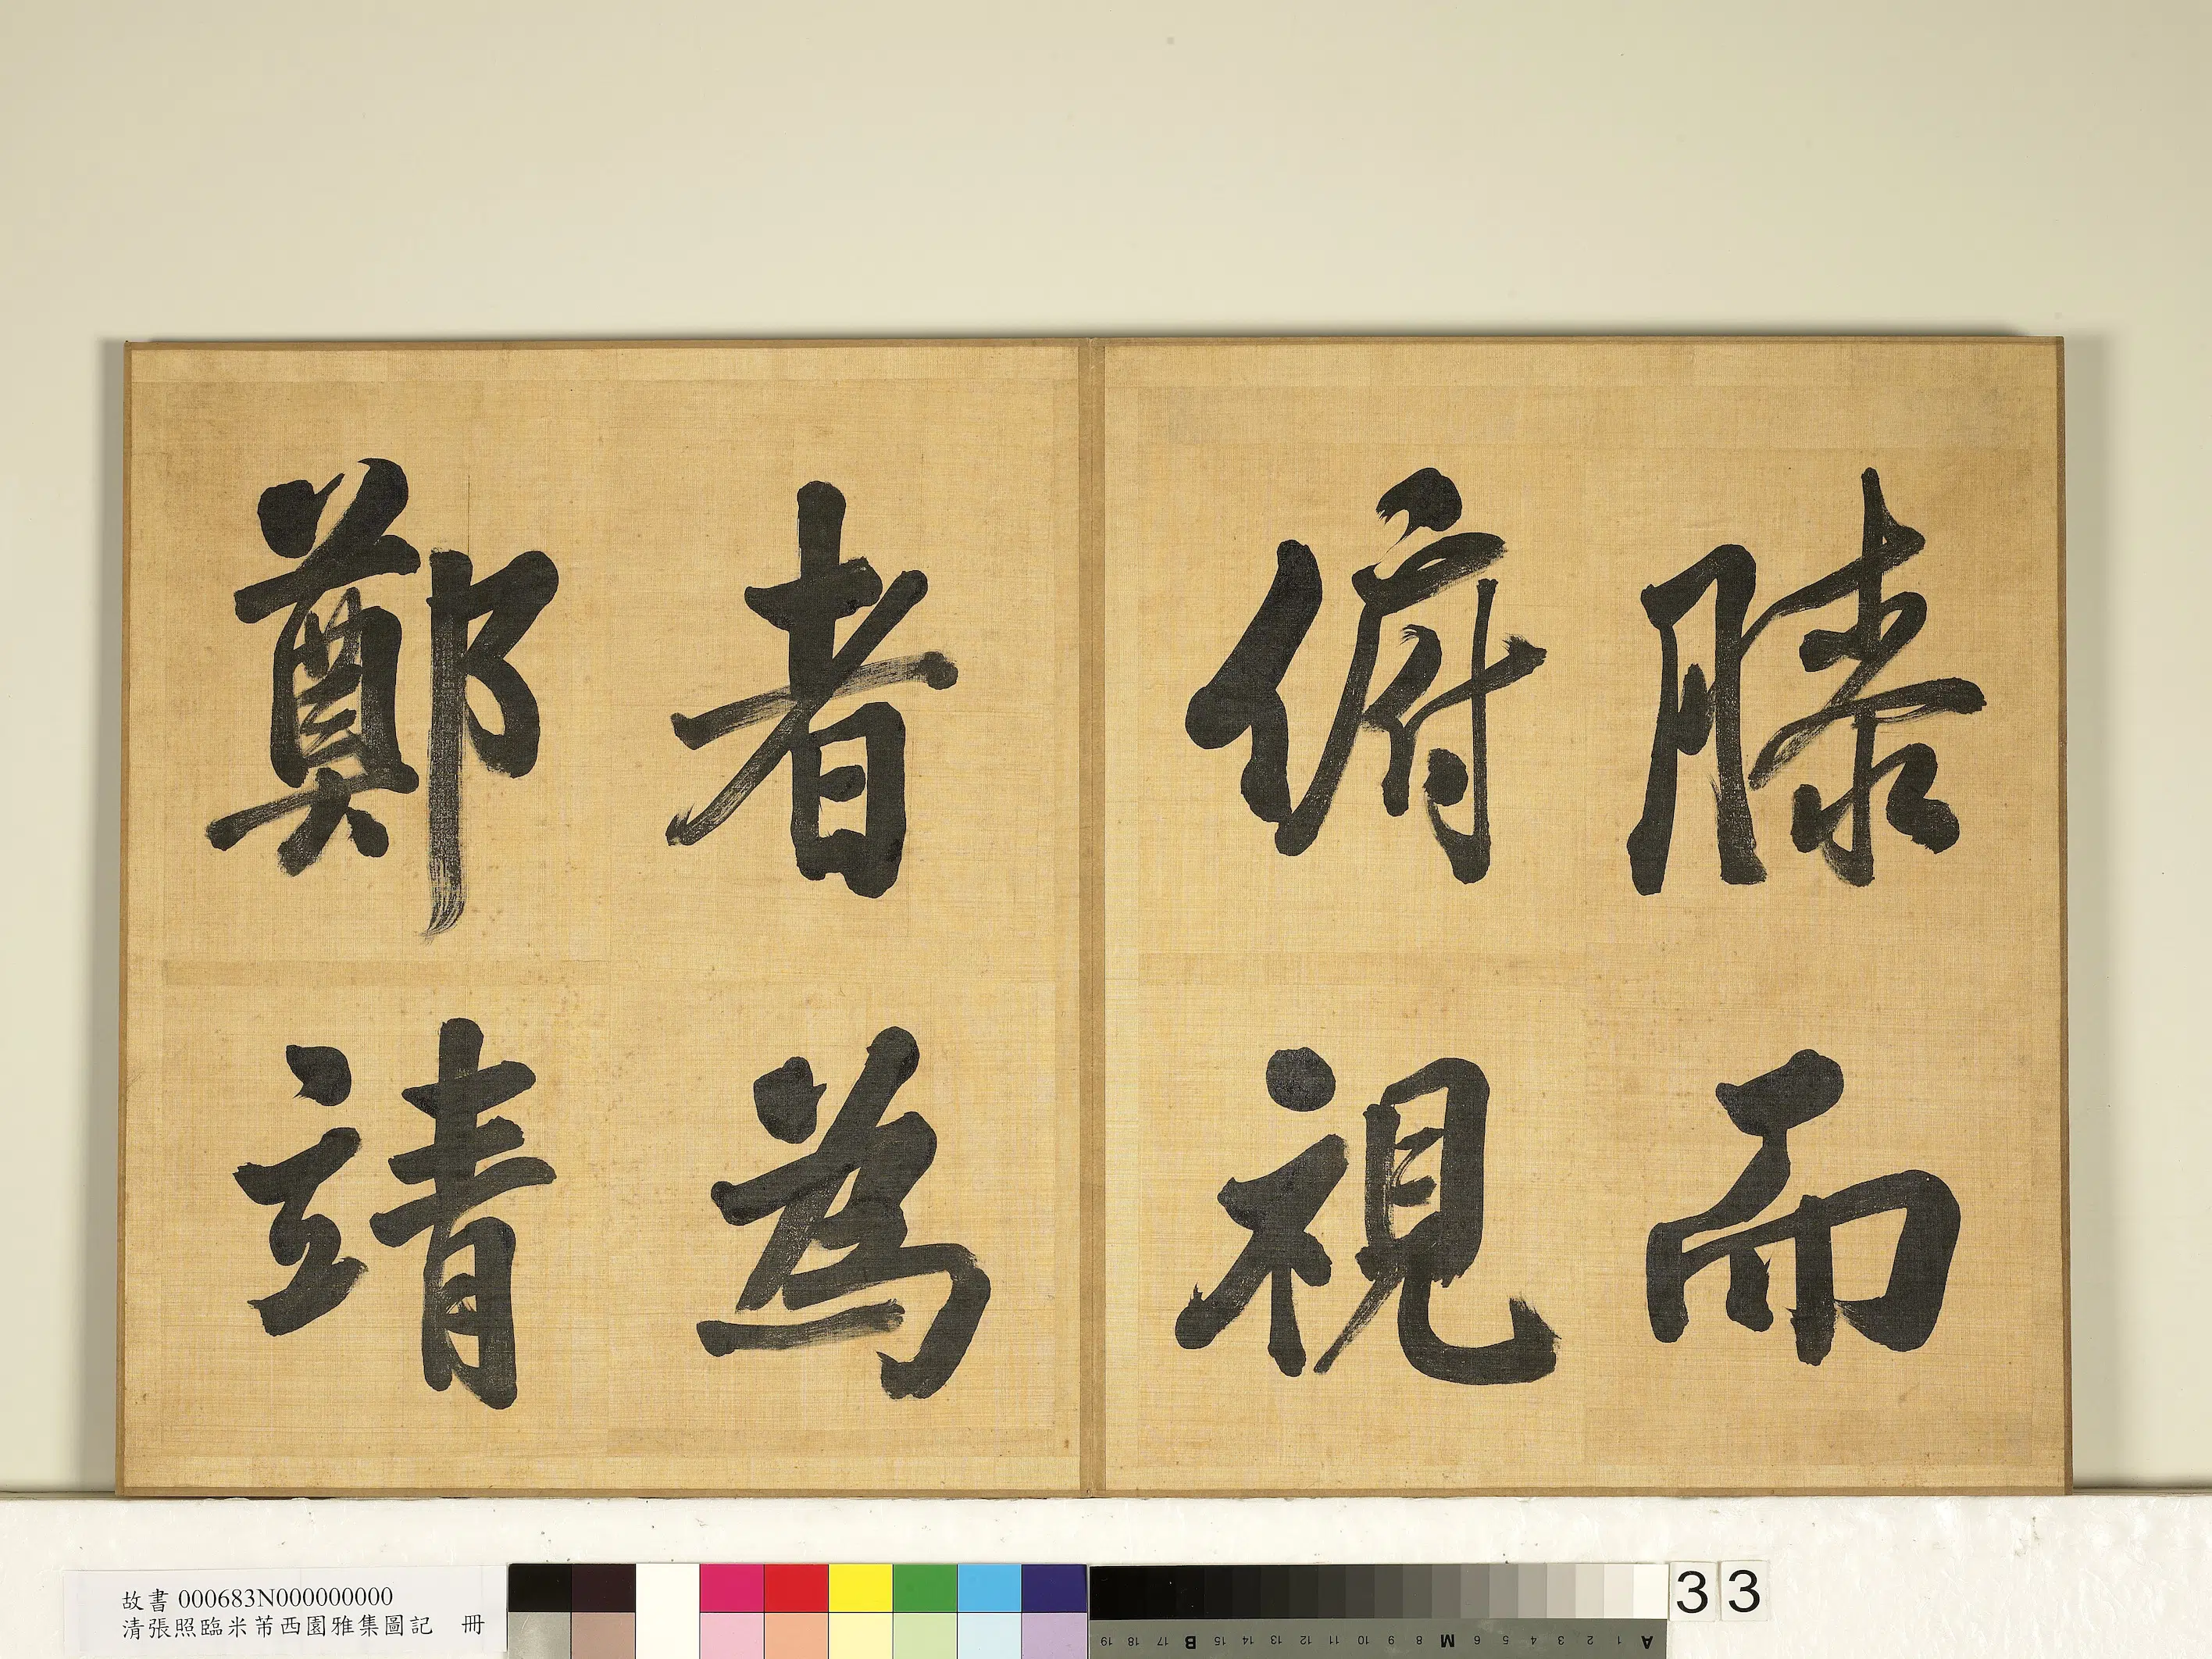 膝而
俯視
者為
鄭靖
故書 000683N000000000
清張照臨米芾西園雅集圖記 冊
33
A 1 2 3 4 5 6 M 8 9 10 11 12 13 14 15 B 17 18 19